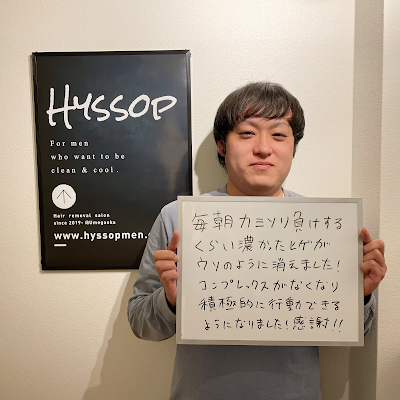 HYSSOP
For men
who want to be
clean & cool.
Hair removal salon
since 2019- @Umegaoka
www.hyssopmen.
毎朝カミソリ負けする
くらい濃かったヒゲが
ウソのように消えました!
コンプレックスがなくなり
積極的に行動できる
ようになりました!感謝!!